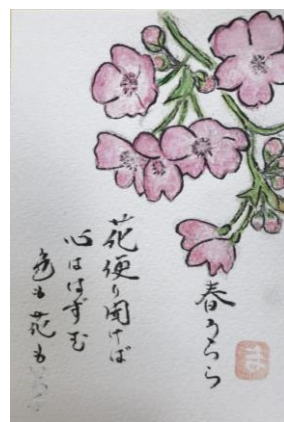 春うらら
花便り聞けば
心ははずむ
色も花も